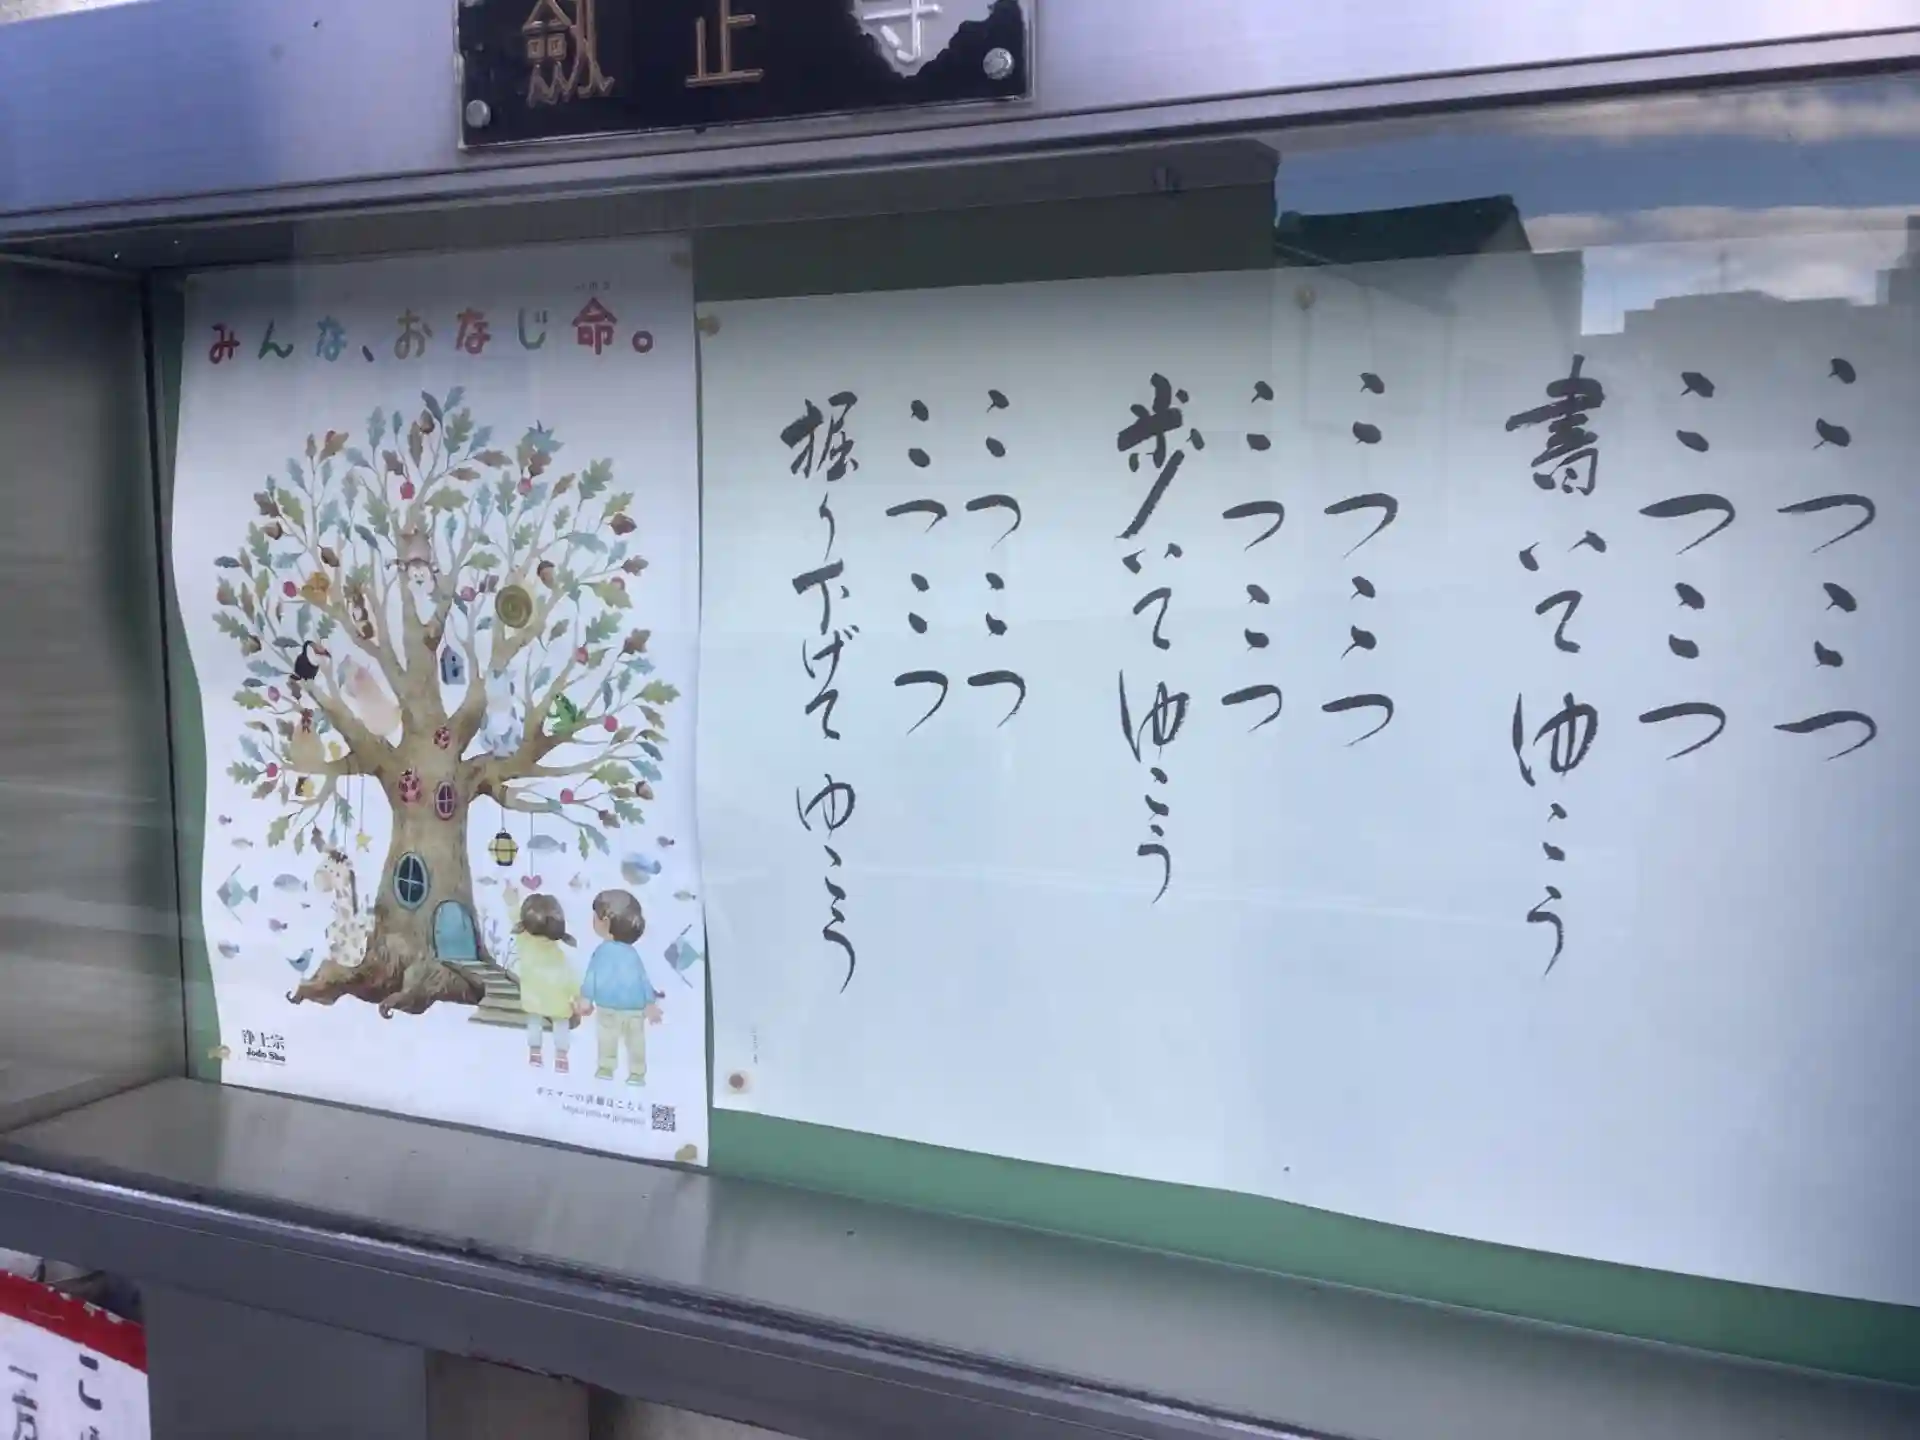 みんな、おなじ命。
浄土宗
Jodo Shu
ポスターの詳細はこちら
こつこつ
こつこつ
書いてゆこう
こつこつ
こつこつ
歩いてゆこう
こつこつ
こつこつ
掘り下げてゆこう